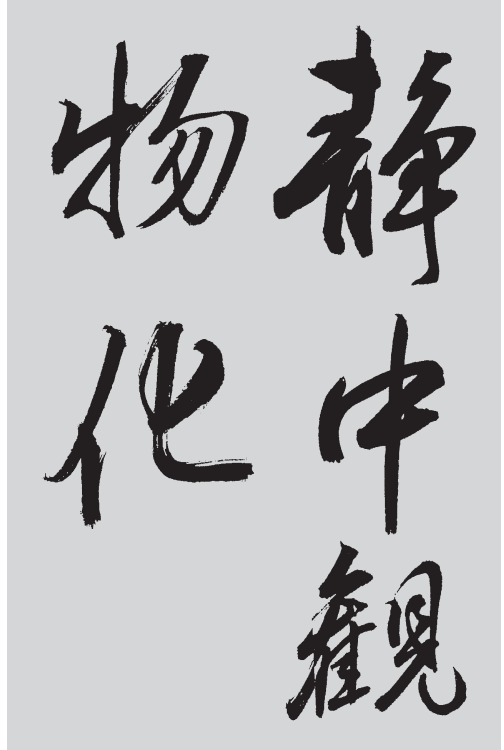 静中觀
物化